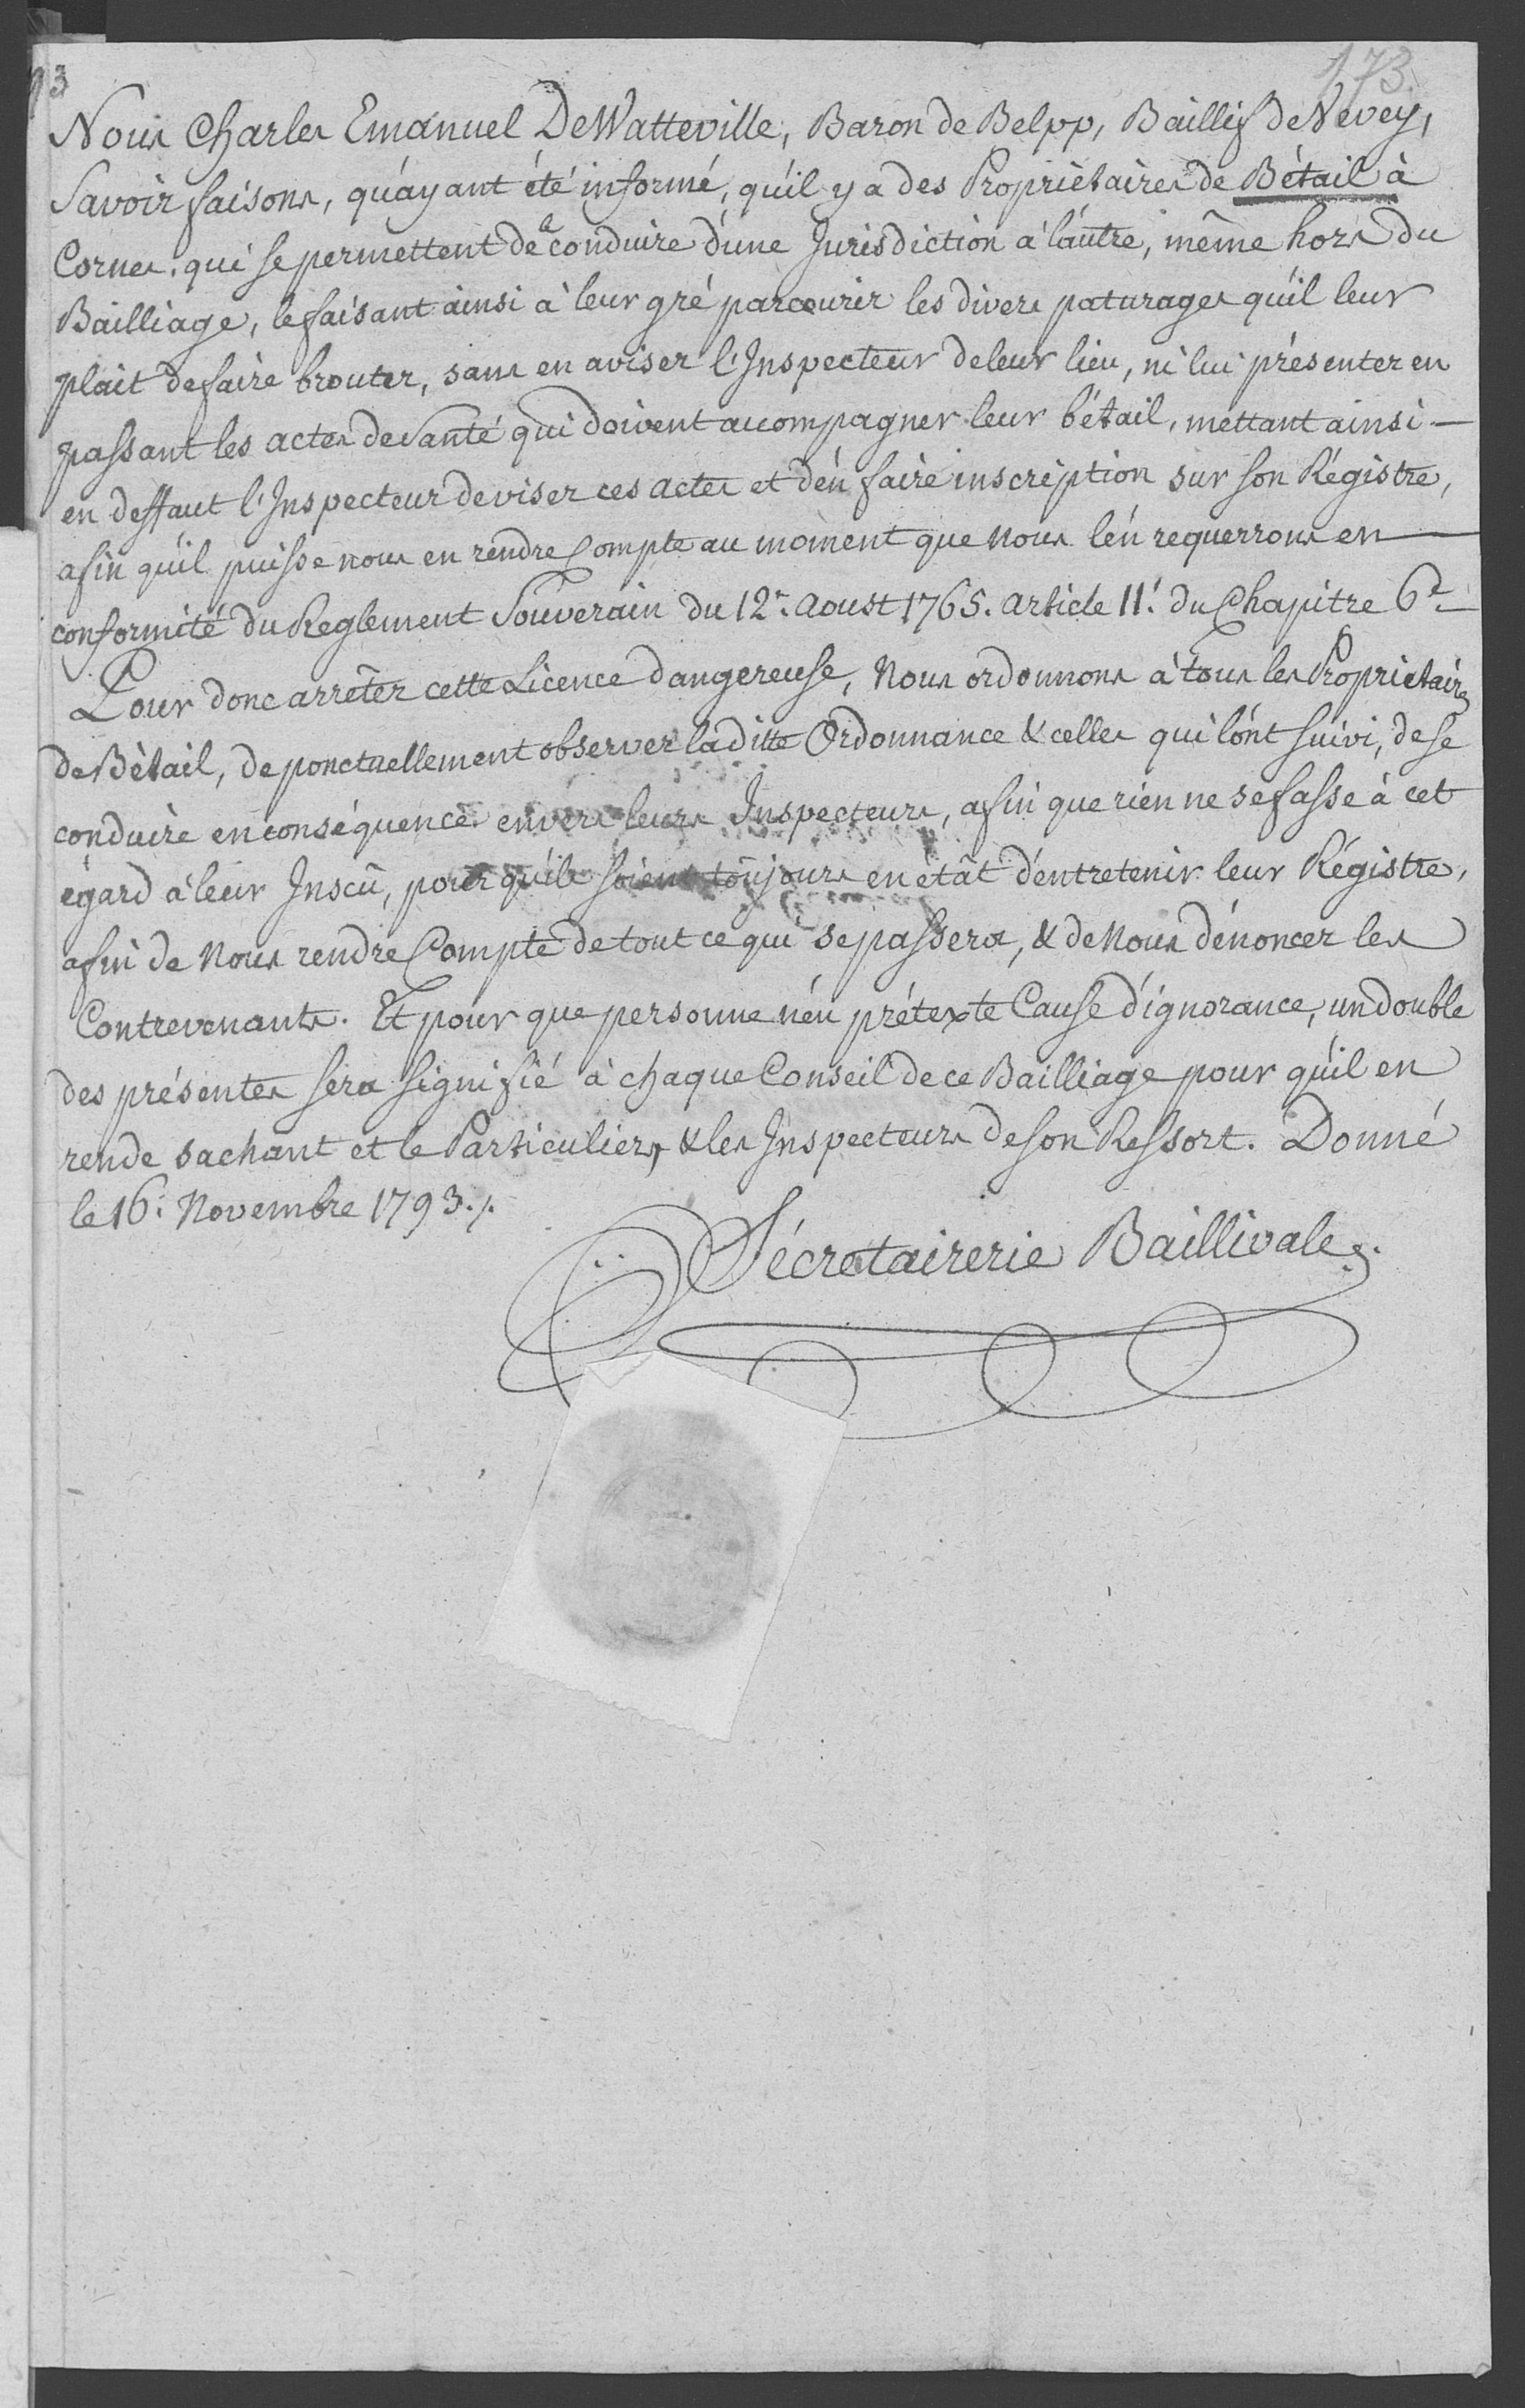 173.
Nous Charles Emanuel DeWatteville, Baron de Belpp, Baillif De Vevey,
Savoir faisons, qu'ayant été informé, qu'il y a des Propriètaires de Bétail à
Cornes. qui se permettent de le conduire d'une Jurisdiction à l'autre, même hors du
Bailliage, le faisant ainsi à leur gré parcourir les divers paturages qu'il leur
plait de faire brouter, sans en aviser l'Inspecteur de leur lieu, ni lui présenter en
passant les actes de Santé qui doivent accompagner leur bétail, mettant ainsi —
en deffaut l'Inspecteur de viser ces actes et d'en faire inscription sur son Régistre,
afin qu'il puisse nous en rendre Compte au moment que nous l'en requerrons en —
conformité du Reglement Souverain du 12e. Aoust 1765. Article 11. du Chapitre 6e
Pour donc arrêter cette Licence dangereuse, Nous ordonnons à tous les Proprietaires
de Bétail, de ponctuellement observer laditte Ordonnance & celles qui l'ont suivi, de se
conduire en conséquence envers leurs Inspecteurs, afin que rien ne se fasse à cet
égard à leur Insçû, pour qu'ils soient toujours en êtât d'entretenir leur Régistre,
afin de Nous rendre Compte de tout ce qui se passera, & de Nous dénoncer les
Contrevenants. Et pour que personne n'en prétexte Cause d'ignorance, un double
des présentes sera signifié à chaque Conseil de ce Bailliage pour qu'il en
rende sachant et le Particulier, & les Inspecteurs de son Ressort. Donné
le 16: Novembre 1793./.
Sécretairerie Baillivale.